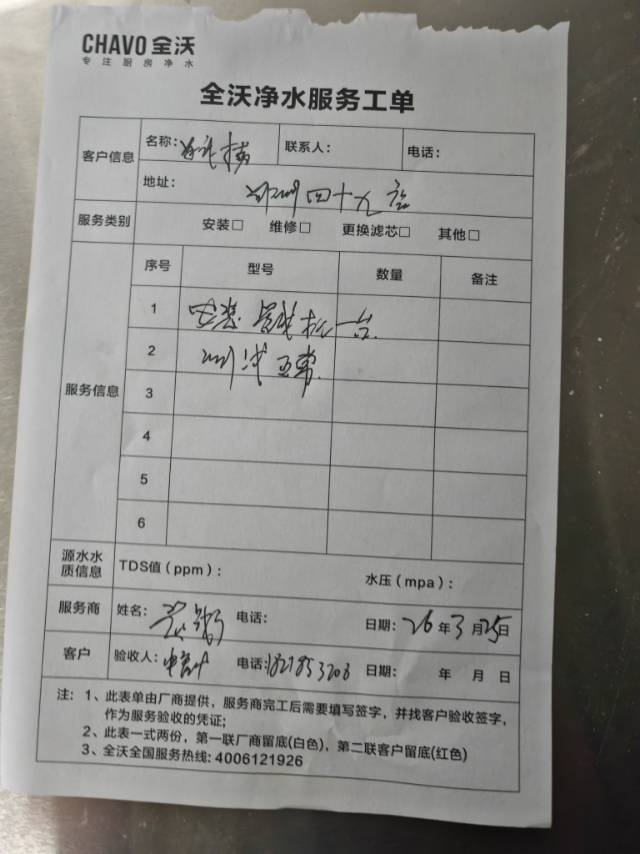 CHAVO 全沃
专注厨房净水
全沃净水服务工单
客户信息
名称：
联系人：
电话：
地址： 郑州四十九店
服务类别
安装□ 维修□ 更换滤芯□ 其他□
服务信息
序号 型号 数量 备注
1 安装 管线机一台
2 调试正常.
3
4
5
6
源水水质信息
TDS值（ppm）： 水压（mpa）：
服务商
姓名： 电话： 日期：26年3月25日
客户
验收人： 电话： 日期： 年 月 日
注：1、此表单由厂商提供，服务商完工后需要填写签字，并找客户验收签字，
作为服务验收的凭证；
2、此表一式两份，第一联厂商留底(白色)，第二联客户留底(红色)
3、全沃全国服务热线: 4006121926